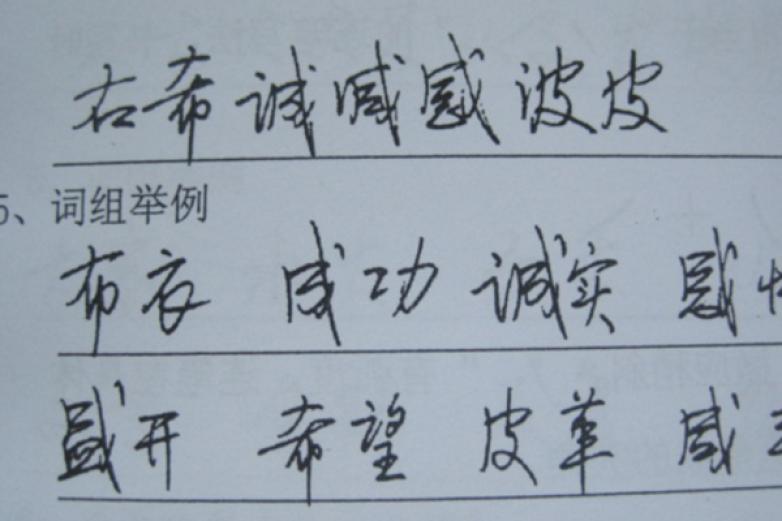 右希诚咸感波皮
5、词组举例
布衣 成功 诚实 感
盛开 希望 皮革 咸